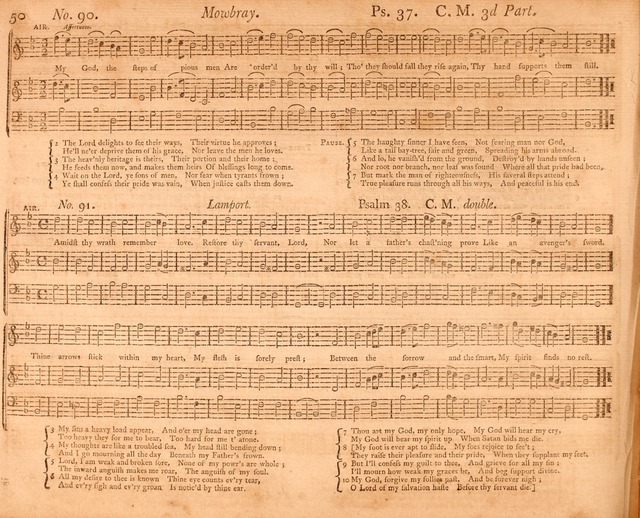 50 No. 90. Mowbray. Ps. 37. C. M. 3d Part.
AIR. Affettuoso.
My God, the steps of pious men Are order'd by thy will; Tho' they should fall they rise again, Thy hand supports them still.
2 The Lord delights to see their ways, Their virtue he approves;
He'll ne'er deprive them of his grace, Nor leave the men he loves.
3 The heav'nly heritage is theirs, Their portion and their home;
He feeds them now, and makes them heirs Of blessings long to come.
4 Wait on the Lord, ye sons of men, Nor fear when tyrants frown;
Ye shall confess their pride was vain, When justice casts them down.
PAUSE.
5 The haughty sinner I have seen, Not fearing man nor God,
Like a tall bay-tree, fair and green, Spreading his arms abroad.
6 And lo, he vanish'd from the ground, Destroy'd by hands unseen;
Nor root nor branch, nor leaf was found Where all that pride had been.
7 But mark the man of righteousness, His several steps attend;
True pleasure runs through all his ways, And peaceful is his end.
AIR. No. 91. Lamport. Psalm 38. C. M. double.
Amidst thy wrath remember love, Restore thy servant, Lord, Nor let a father's chast'ning prove Like an avenger's sword.
Thine arrows stick within my heart, My flesh is sorely prest; Between the sorrow and the smart, My spirit finds no rest.
3 My sins a heavy load appear, And o'er my head are gone;
Too heavy they for me to bear, Too hard for me t' atone.
4 My thoughts are like a troubled sea, My head still bending down;
And I go mourning all the day Beneath my Father's frown.
5 Lord, I am weak and broken sore, None of my pow'rs are whole;
The inward anguish makes me roar, The anguish of my soul.
6 All my desire to thee is known Thine eye counts ev'ry tear,
And ev'ry sigh and ev'ry groan Is notic'd by thine ear.
7 Thou art my God, my only hope, My God will hear my cry,
My God will bear my spirit up When Satan bids me die.
8 [My foot is ever apt to slide, My foes rejoice to see't;
They raise their pleasure and their pride, When they supplant my feet.
9 But I'll confess my guilt to thee, And grieve for all my sin;
I'll mourn how weak my graces be, And beg support divine.
10 My God, forgive my follies past, And be forever nigh;
O Lord of my salvation haste Before thy servant die.]